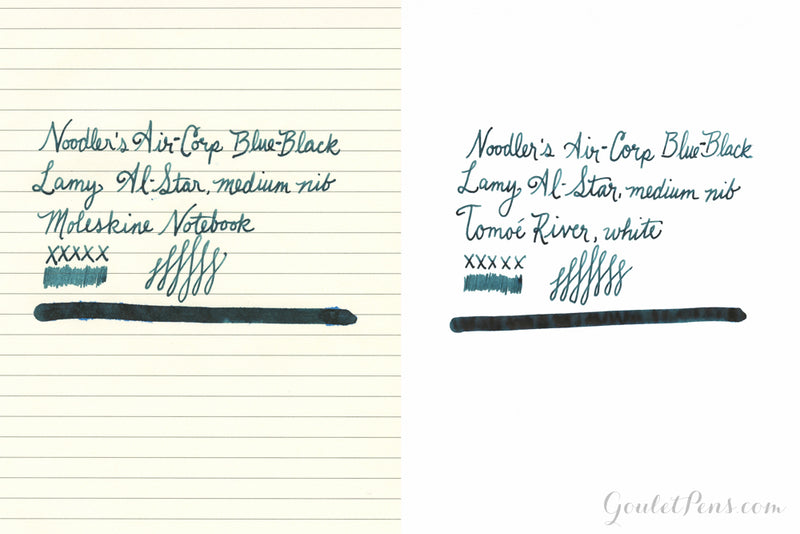 Noodler's Air-Corp Blue-Black
Lamy Al-Star, medium nib
Moleskine Notebook
XXXXX
Noodler's Air-Corp Blue-Black
Lamy Al-Star, medium nib
Tomoé River, white
XXXXX
GouletPens.com